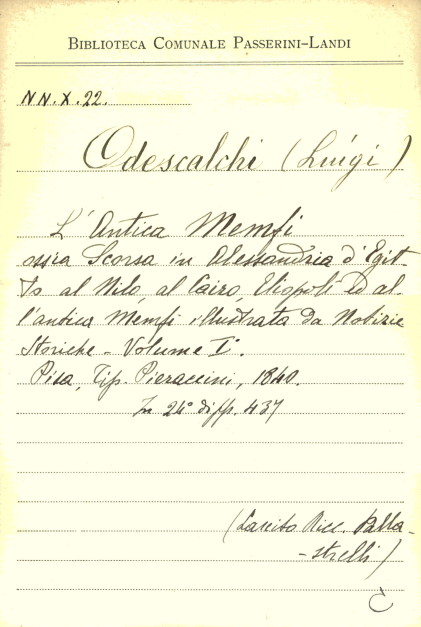 BIBLIOTECA COMUNALE PASSERINI-LANDI
NN.X.22.
Odescalchi (Luigi)
L'Antica Memfi
ossia Scorsa in Alessandria d'Egit-
to al Nilo, al Cairo, Eliopoli ed al-
l'antica Memfi illustrata da Notizie
Storiche - Volume I°.
Pisa, Tip. Pieraccini, 1840.
In 24° di pp. 437
(Lascito Ricc. Palla-
-strelli)
C